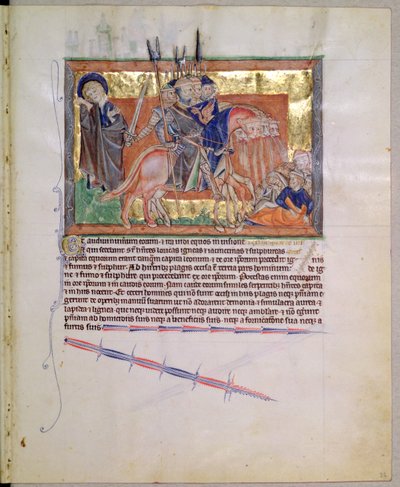 Et audivi numerum eorum · et ita vidi equos in visione
et qui sedebant s' eos habentes loricas igneas ⁊ iacinctinas ⁊ sulphureas
⁊ capita equorum erant tanquam capita leonum · ⁊ de ore ipsorum procedit ig nis
⁊ fumus ⁊ sulphur. Ab his tribus plagis occisa est tercia pars hominum · de ig
ne · ⁊ fumo ⁊ sulphure qui procedebant ex ore ipsorum. Potestas enim equorum
in ore ipsorum ⁊ in caudis eorum. Nam caude eorum similes serpentibus habentes capita
⁊ in his nocent. Et ceteri homines qui non sunt occisi in his plagis neque penitentiam
egerunt de operibus manuum suarum ut non adorarent demonia ⁊ simulacra aurea ⁊
lapidea ⁊ lignea que neque videre possunt neque audire neque ambulare · ⁊ non egerunt
penitentiam ab homicidiis suis neque a beneficiis suis neque a fornicatione sua neque a
furtis suis